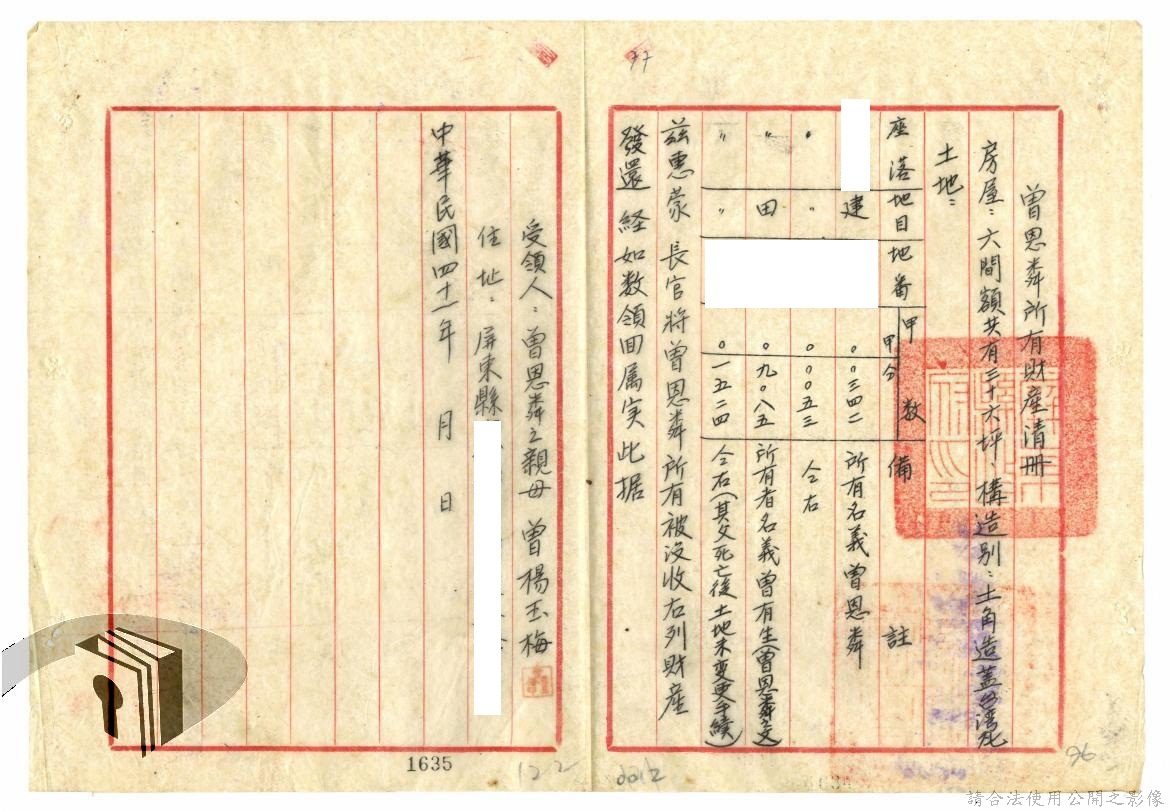 曾恩粦所有財産清冊
房屋：六間額共有三十六坪、構造別：土角造蓋台湾瓦
土地：
座落 地目 地番 甲数 備註
甲分
建 〇〇三四二 所有名義曾恩粦
〃 〃 〇〇〇五三 仝右
〃 田 〇九〇八五 所有者名義曾有生(曾恩粦之父)
〃 〃 〇一五二四 仝右(其父死亡後土地未変更手續)
茲惠蒙 長官將曾恩粦所有被沒收右列財産
發還 経如数領回属实此据
受領人：曾恩粦之親母 曾楊玉梅
住址：屏東縣
中華民國四十一年 月 日
77
96
1635
122
請合法使用公開之影像